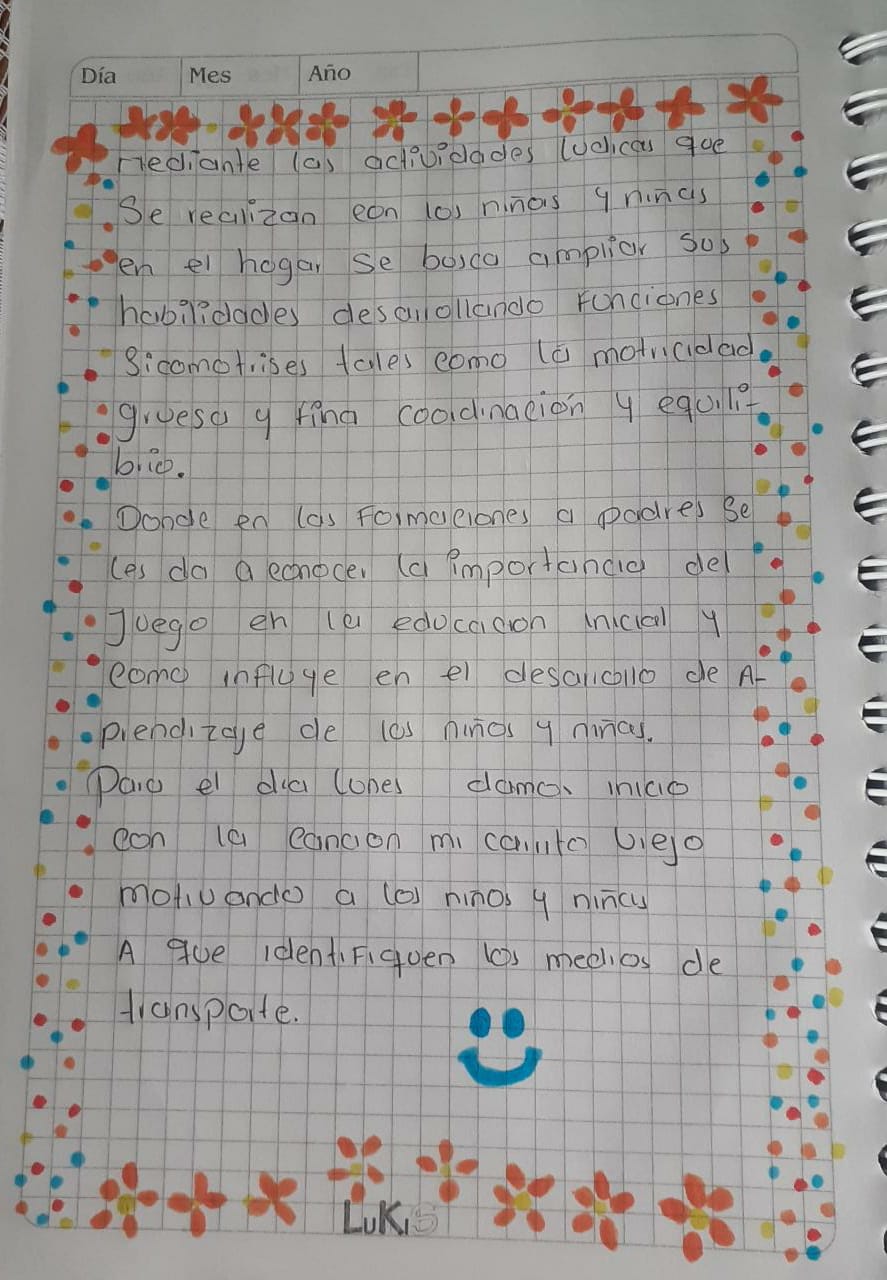 Día Mes Año
Mediante las actividades ludicas que
Se realizan con los niños y niñas
en el hogar se busca ampliar sus
habilidades desarrollando funciones
Sicomotrises tales como la motricidad
gruesa y fina coordinacion y equili-
brio.
Donde en las Formaciones a padres Se
les da a conocer la importancia del
Juego en la educacion inicial y
como influye en el desarrollo de A-
prendizaye de los niños y niñas.
Para el dia lunes damos inicio
con la cancion mi carrito viejo
motivando a los niños y niñas
A que identifiquen los medios de
transporte.
LUKIS